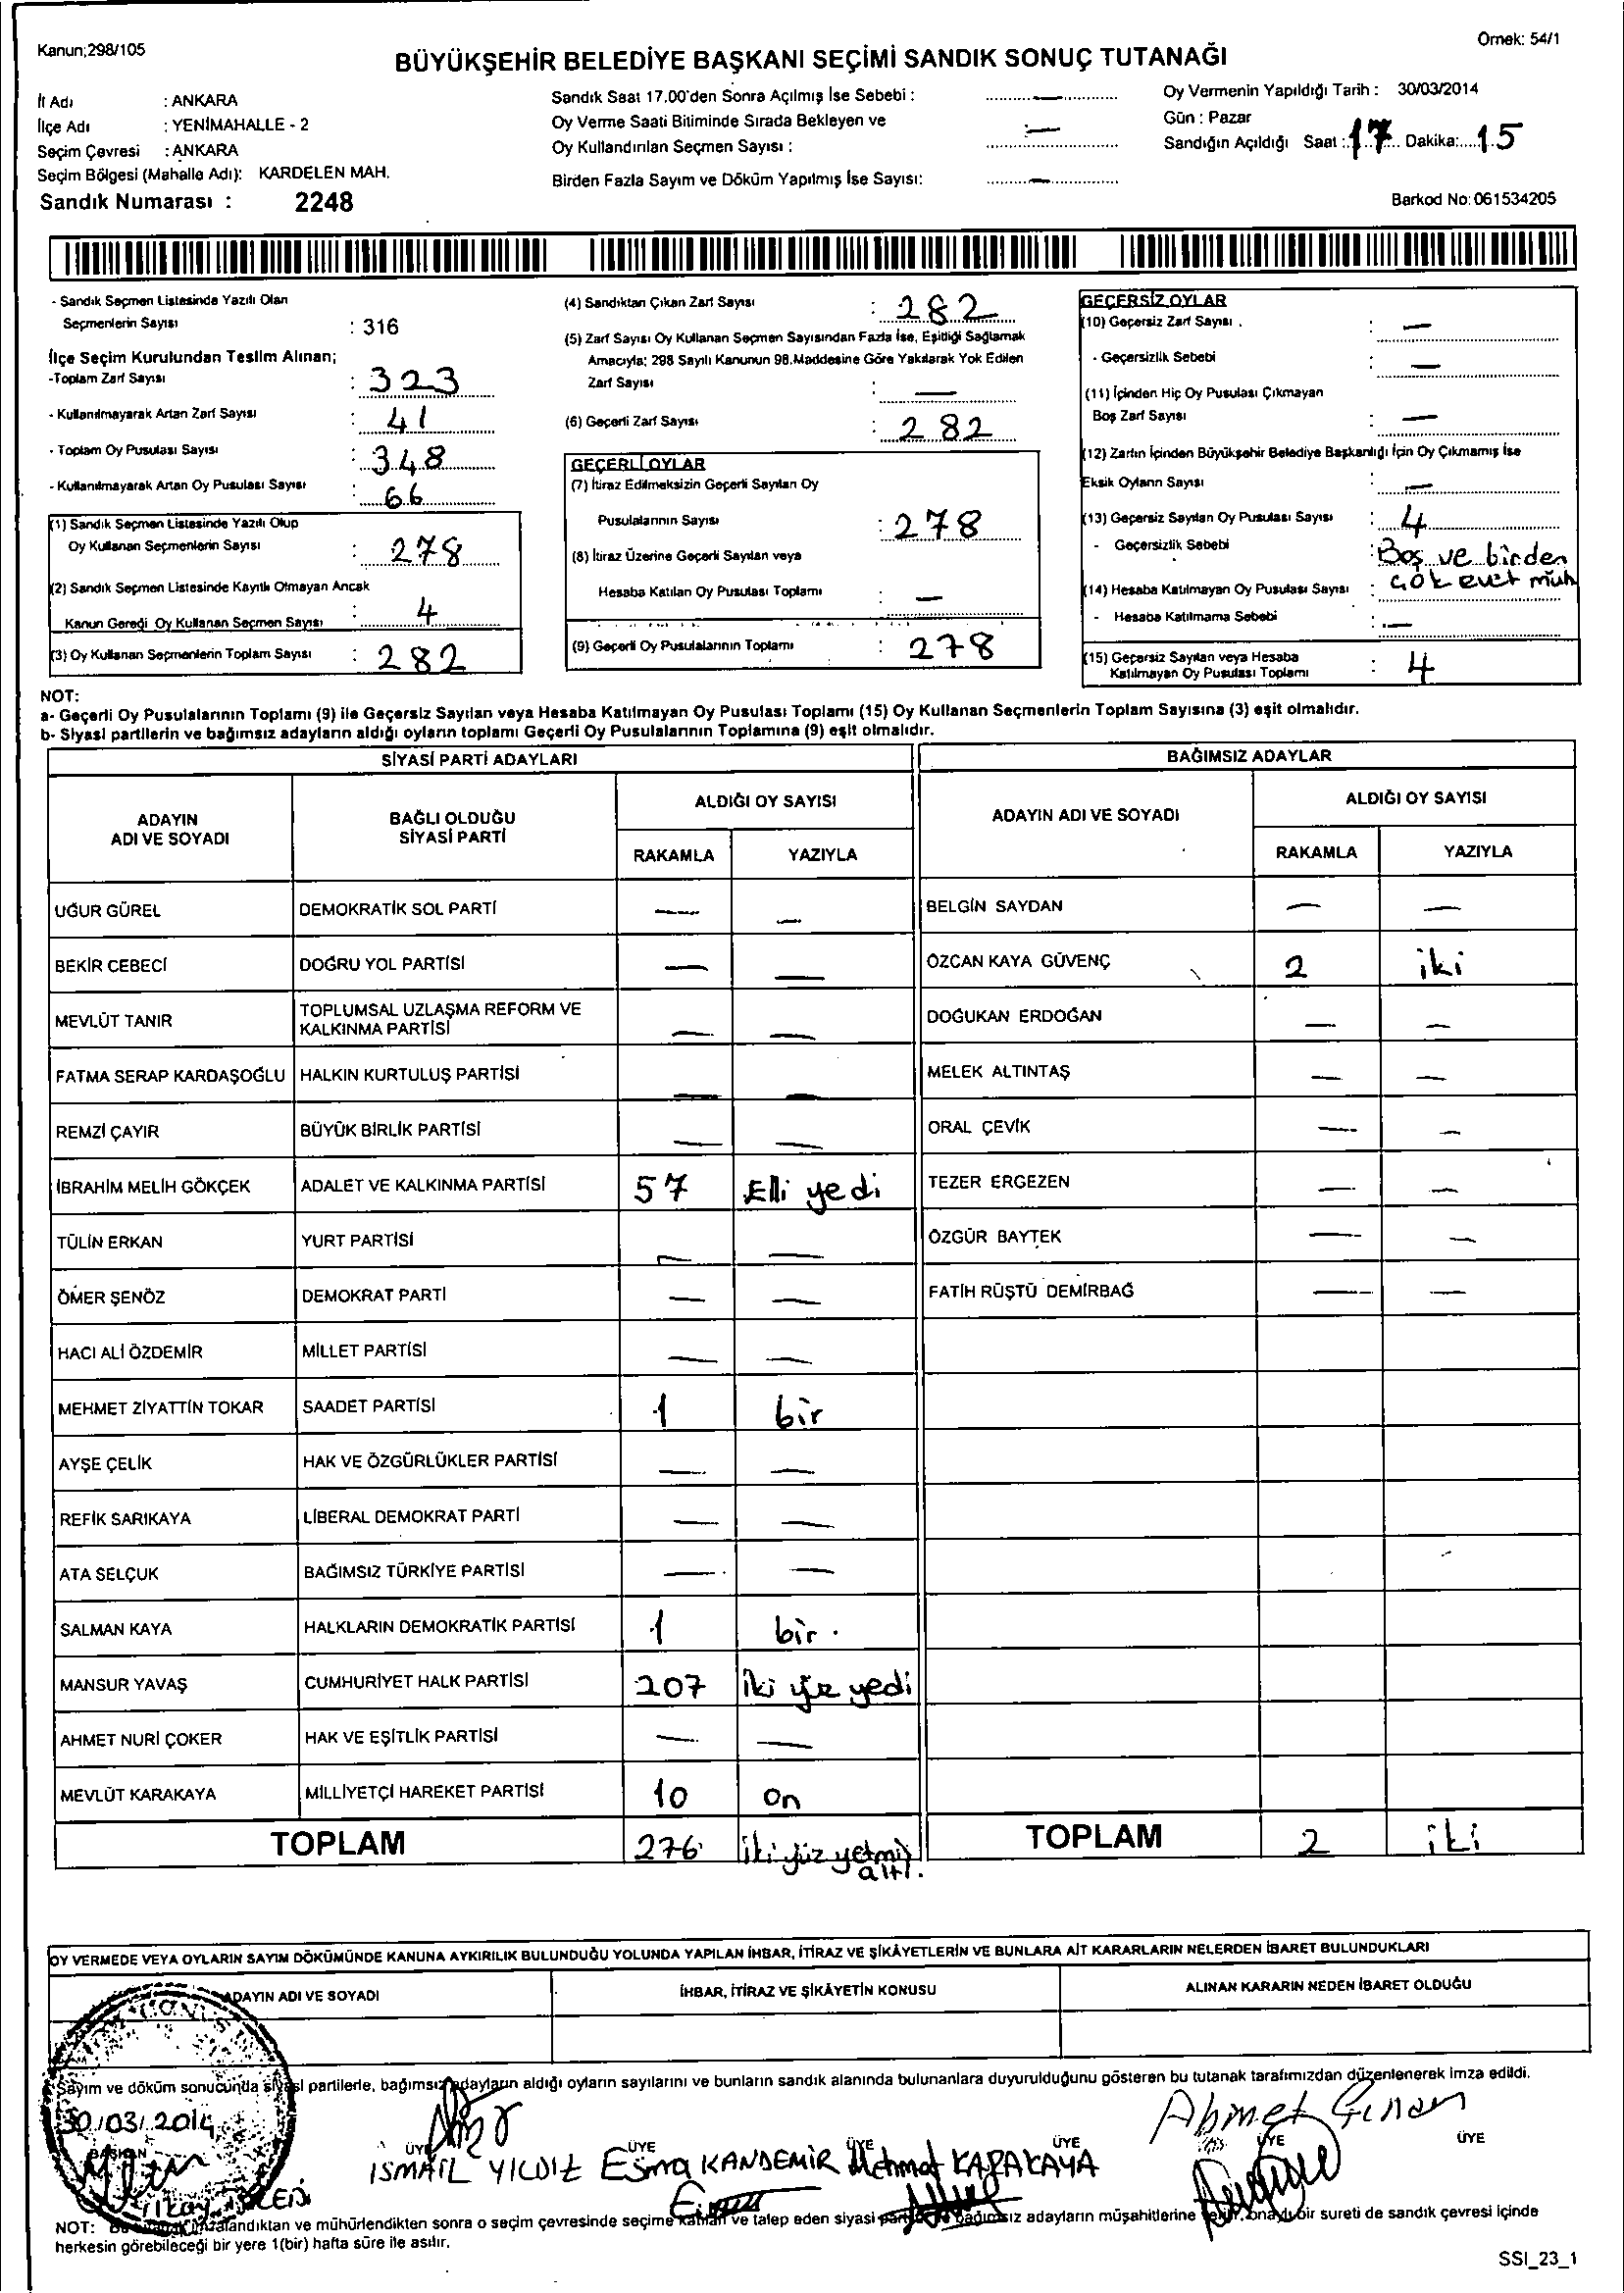 Kanun;298/105
Örnek: 54/1
BÜYÜKŞEHİR BELEDİYE BAŞKANI SEÇİMİ SANDIK SONUÇ TUTANAĞI
İl Adı : ANKARA
İlçe Adı : YENİMAHALLE - 2
Seçim Çevresi : ANKARA
Seçim Bölgesi (Mahalle Adı): KARDELEN MAH.
Sandık Numarası : 2248
Sandık Saat 17.00'den Sonra Açılmış İse Sebebi : —
Oy Verme Saati Bitiminde Sırada Bekleyen ve
Oy Kullandırılan Seçmen Sayısı : —
Birden Fazla Sayım ve Döküm Yapılmış İse Sayısı: —
Oy Vermenin Yapıldığı Tarih : 30/03/2014
Gün : Pazar
Sandığın Açıldığı Saat : 17 Dakika: 15
Barkod No: 061534205
- Sandık Seçmen Listesinde Yazılı Olan
Seçmenlerin Sayısı : 316
İlçe Seçim Kurulundan Teslim Alınan;
-Toplam Zarf Sayısı : 323
- Kullanılmayarak Artan Zarf Sayısı : 41
- Toplam Oy Pusulası Sayısı : 348
- Kullanılmayarak Artan Oy Pusulası Sayısı : 66
(1) Sandık Seçmen Listesinde Yazılı Olup
Oy Kullanan Seçmenlerin Sayısı : 278
(2) Sandık Seçmen Listesinde Kayıtlı Olmayan Ancak
Kanun Gereği Oy Kullanan Seçmen Sayısı : 4
(3) Oy Kullanan Seçmenlerin Toplam Sayısı : 282
(4) Sandıktan Çıkan Zarf Sayısı : 282
(5) Zarf Sayısı Oy Kullanan Seçmen Sayısından Fazla İse, Eşitliği Sağlamak
Amacıyla; 298 Sayılı Kanunun 98.Maddesine Göre Yakılarak Yok Edilen
Zarf Sayısı : —
(6) Geçerli Zarf Sayısı : 282
GEÇERLİ OYLAR
(7) İtiraz Edilmeksizin Geçerli Sayılan Oy
Pusulalarının Sayısı : 278
(8) İtiraz Üzerine Geçerli Sayılan veya
Hesaba Katılan Oy Pusulası Toplamı : —
(9) Geçerli Oy Pusulalarının Toplamı : 278
GEÇERSİZ OYLAR
(10) Geçersiz Zarf Sayısı . : —
- Geçersizlik Sebebi : —
(11) İçinden Hiç Oy Pusulası Çıkmayan
Boş Zarf Sayısı : —
(12) Zarfın İçinden Büyükşehir Belediye Başkanlığı İçin Oy Çıkmamış İse
Eksik Oyların Sayısı : —
(13) Geçersiz Sayılan Oy Pusulası Sayısı : 4
- Geçersizlik Sebebi : Boş ve birden
çok evet müh
(14) Hesaba Katılmayan Oy Pusulası Sayısı :
- Hesaba Katılmama Sebebi : —
(15) Geçersiz Sayılan veya Hesaba
Katılmayan Oy Pusulası Toplamı : 4
NOT:
a- Geçerli Oy Pusulalarının Toplamı (9) ile Geçersiz Sayılan veya Hesaba Katılmayan Oy Pusulası Toplamı (15) Oy Kullanan Seçmenlerin Toplam Sayısına (3) eşit olmalıdır.
b- Siyasi partilerin ve bağımsız adayların aldığı oyların toplamı Geçerli Oy Pusulalarının Toplamına (9) eşit olmalıdır.
SİYASİ PARTİ ADAYLARI
ADAYIN
ADI VE SOYADI
BAĞLI OLDUĞU
SİYASİ PARTİ
ALDIĞI OY SAYISI
RAKAMLA YAZIYLA
UĞUR GÜREL DEMOKRATİK SOL PARTİ — —
BEKİR CEBECİ DOĞRU YOL PARTİSİ — —
MEVLÜT TANIR TOPLUMSAL UZLAŞMA REFORM VE
KALKINMA PARTİSİ — —
FATMA SERAP KARDAŞOĞLU HALKIN KURTULUŞ PARTİSİ — —
REMZİ ÇAYIR BÜYÜK BİRLİK PARTİSİ — —
İBRAHİM MELİH GÖKÇEK ADALET VE KALKINMA PARTİSİ 57 Elli yedi
TÜLİN ERKAN YURT PARTİSİ — —
ÖMER ŞENÖZ DEMOKRAT PARTİ — —
HACI ALİ ÖZDEMİR MİLLET PARTİSİ — —
MEHMET ZİYATTİN TOKAR SAADET PARTİSİ 1 bir
AYŞE ÇELİK HAK VE ÖZGÜRLÜKLER PARTİSİ — —
REFİK SARIKAYA LİBERAL DEMOKRAT PARTİ — —
ATA SELÇUK BAĞIMSIZ TÜRKİYE PARTİSİ — —
SALMAN KAYA HALKLARIN DEMOKRATİK PARTİSİ 1 bir .
MANSUR YAVAŞ CUMHURİYET HALK PARTİSİ 207 İki yüz yedi
AHMET NURİ ÇOKER HAK VE EŞİTLİK PARTİSİ — —
MEVLÜT KARAKAYA MİLLİYETÇİ HAREKET PARTİSİ 10 on
TOPLAM 276 iki yüz yetmiş
altı.
BAĞIMSIZ ADAYLAR
ADAYIN ADI VE SOYADI
ALDIĞI OY SAYISI
RAKAMLA YAZIYLA
BELGİN SAYDAN — —
ÖZCAN KAYA GÜVENÇ 2 iki
DOĞUKAN ERDOĞAN — —
MELEK ALTINTAŞ — —
ORAL ÇEVİK — —
TEZER ERGEZEN — —
ÖZGÜR BAYTEK — —
FATİH RÜŞTÜ DEMİRBAĞ — —
TOPLAM 2 iki
OY VERMEDE VEYA OYLARIN SAYIM DÖKÜMÜNDE KANUNA AYKIRILIK BULUNDUĞU YOLUNDA YAPILAN İHBAR, İTİRAZ VE ŞİKÂYETLERİN VE BUNLARA AİT KARARLARIN NELERDEN İBARET BULUNDUKLARI
ADAYIN ADI VE SOYADI
İHBAR, İTİRAZ VE ŞİKÂYETİN KONUSU
ALINAN KARARIN NEDEN İBARET OLDUĞU
Sayım ve döküm sonucunda siyasi partilerle, bağımsız adayların aldığı oyların sayılarını ve bunların sandık alanında bulunanlara duyurulduğunu gösteren bu tutanak tarafımızdan düzenlenerek imza edildi.
30/03/2014
BAŞKAN ÜYE ÜYE ÜYE ÜYE ÜYE ÜYE
İSMAİL YILDIZ Esma KANDEMİR Mehmet KARAKAYA Ahmet Çınar
NOT: Bu tutanak imzalandıktan ve mühürlendikten sonra o seçim çevresinde seçime katılan ve talep eden siyasi parti ve bağımsız adayların müşahitlerine verilir, onaylı bir sureti de sandık çevresi içinde
herkesin görebileceği bir yere 1(bir) hafta süre ile asılır.
SSI_23_1